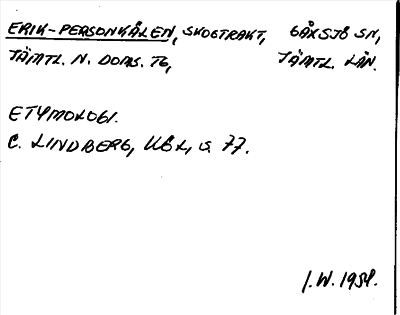 ERIK-PERSONKÅLEN, SKOGTRAKT, GÅXSJÖ SN,
JÄMTL. N. DOMS. TG, JÄMTL. LÄN.
ETYMOLOGI.
C. LINDBERG, UÅL, S. 77.
I.W. 1954.